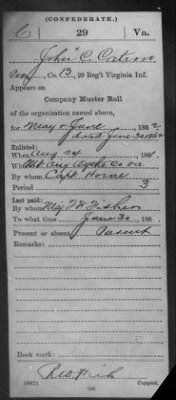 (CONFEDERATE.)
C 29 Va.
John C. Catron
, Co. B, 29 Reg't Virginia Inf.
Appears on
Company Muster Roll
of the organization named above,
for May & June, 1862
dated June 30 1862
Enlisted:
When Aug 24, 186 .
Where
By whom Capt. Horne
Period 3
Last paid:
By whom Maj
To what time June 30, 186
Present or absent Present
Remarks:
Book mark:
(642)
Copyist.